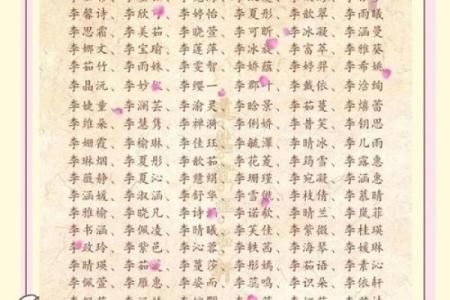 李馨诗、李欣、李婷怡、李夏彤、李歆翠、李雨曦
李思霜、李美茹、李晓萱、李可昕、李冰凝、李涵曼
李娜文、李宝瑜、李莲萍、李冰旋、李富萃、李雅葵
李茹竹、李雨姝、李雯智、李娇薇、李婷羿、李希嫣
李晶沅、李妙、李缨、李郡叶、李戴依、李洽绚
李婕童、李澜芸、李渝灵、李晗景、李茹蔓、李熺蕾
李维朵、李慧隽、李禅漪、李俐娇、李昔笑、李钥思
李姗霞、李榆琳、李佳珏、李毓泽、李晴冰、李儿雨
李琳烟、李夏彤、李歆茹、李花菱、李筠雪、李露惠
李薇、李夏沁、李慧娟、李珊瑾、李宛凝、李涵惠
李涵媛、李淑涵、李舒华、李雪傲、李枝倩、李慕晴
李雅榆、李晓凡、李诗、李诺歆、李晴兰、李岚菲
李书涵、李佩凌、李晴曦、李芙佳、李紫萱、李桂瑛
李玫玲、李紫邑、李沁蕾、李轶茜、李海琴、李媛琳
李晴瑛、李曼、李蔓莎、李彤嫣、李茹语、李素沁
李佩萱、李惠、李姿雨、李蕊鸣、李识朵、李依轩